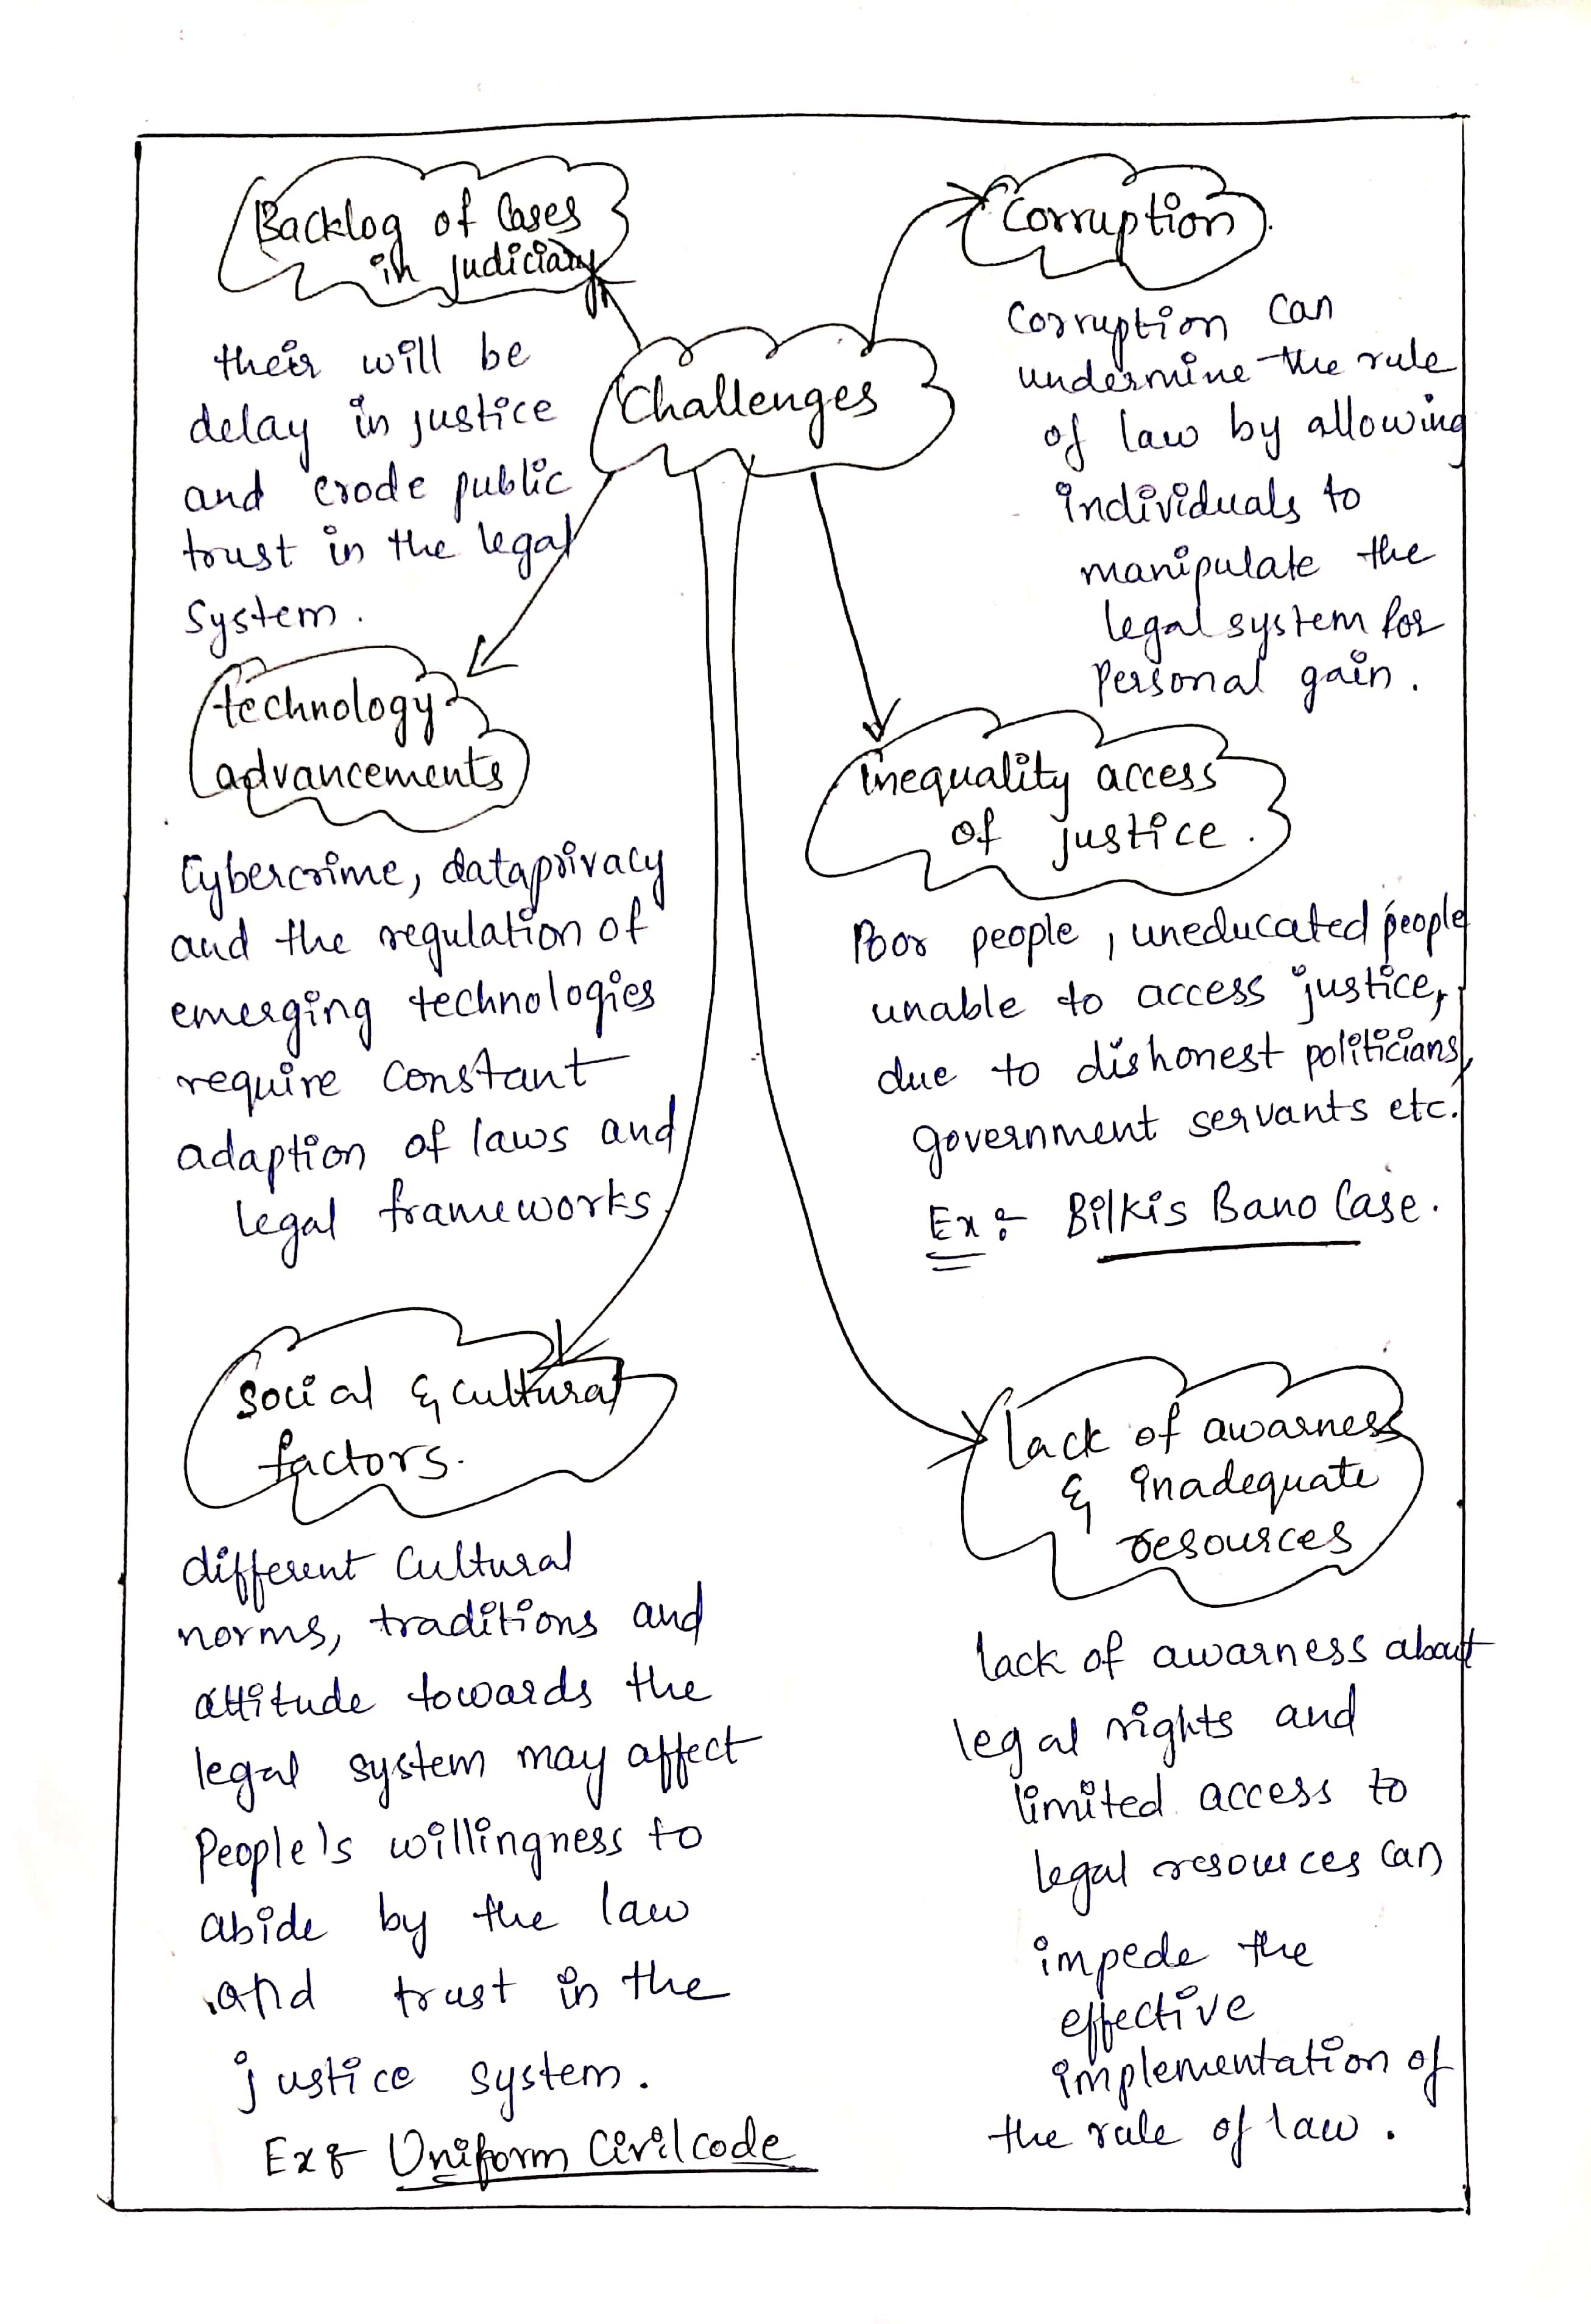 Backlog of Cases
in judiciary
their will be
delay in justice
and erode public
trust in the legal
System.
Challenges
Corruption.
Corruption can
undermine the rule
of law by allowing
individuals to
manipulate the
legal system for
Personal gain.
technology
advancements
Cybercrime, dataprivacy
and the regulation of
emerging technologies
require constant
adaption of laws and
legal frameworks.
inequality access
of justice.
Poor people, uneducated people
unable to access justice,
due to dishonest politicians,
government servants etc.
Ex:- Bilkis Bano Case.
Social & cultural
factors.
different Cultural
norms, traditions and
attitude towards the
legal system may affect
People's willingness to
abide by the law
and trust in the
justice system.
Ex:- Uniform Civil code
lack of awarness
& inadequate
resources
lack of awarness about
legal rights and
limited access to
legal resources can
impede the
effective
implementation of
the rule of law.